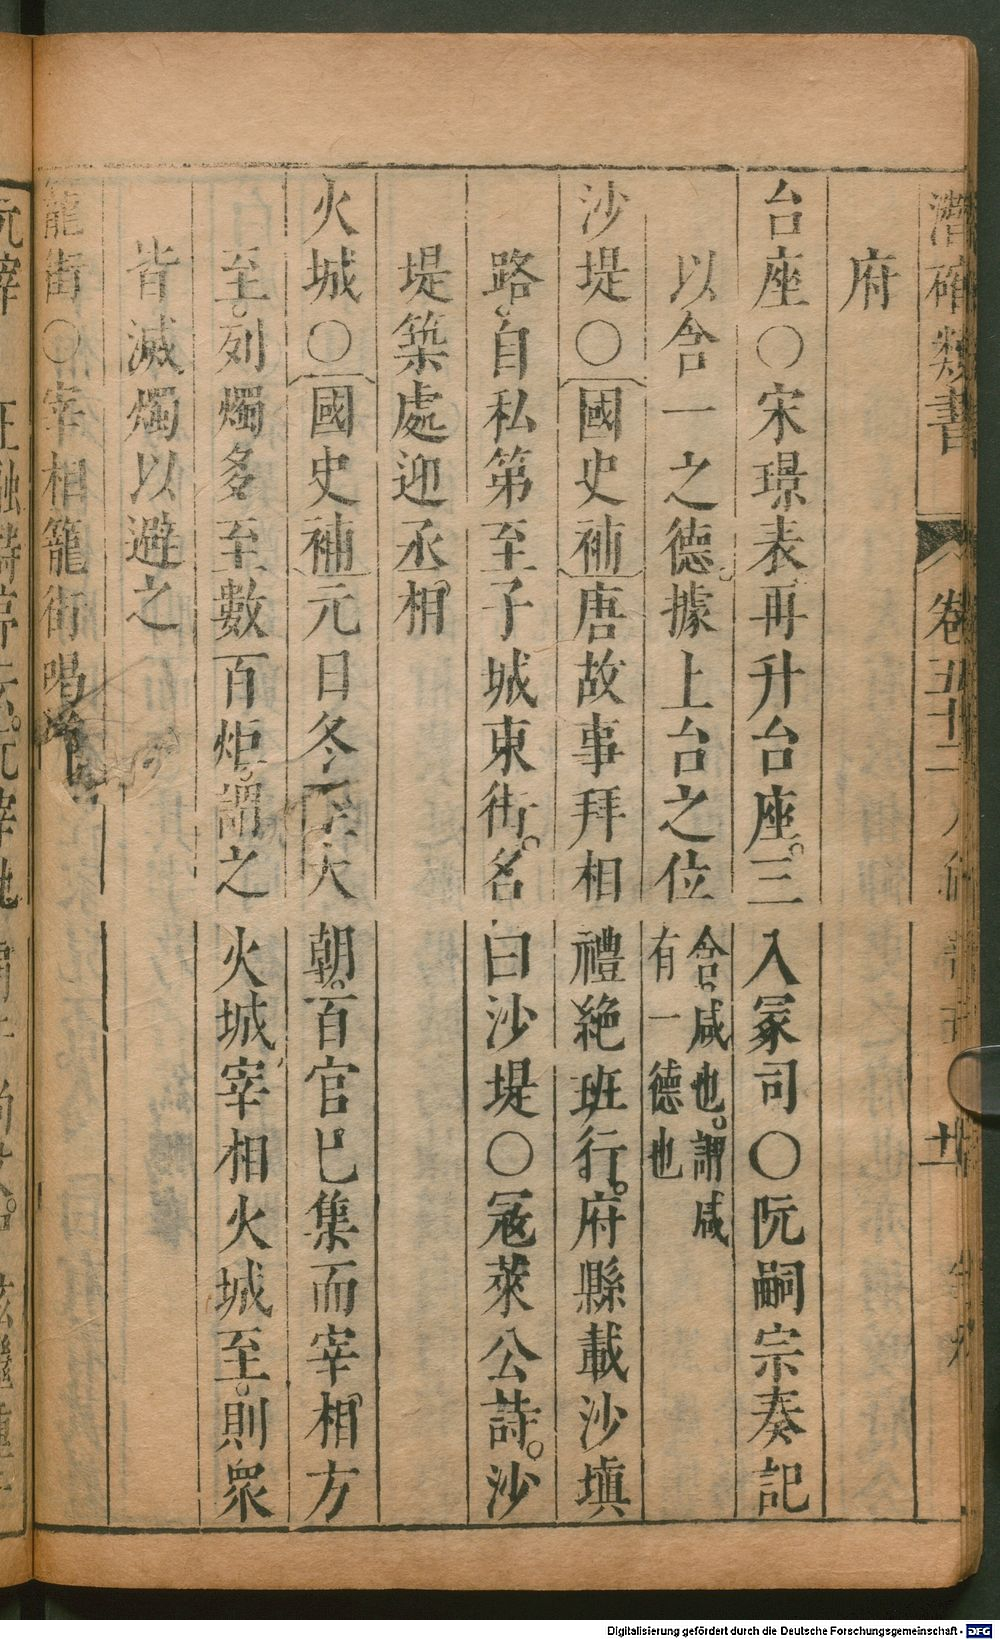 潛確類書 卷五十二 廿
府
台座〇宋璟表再升台座三入冢司〇阮嗣宗奏記
以含一之德據上台之位含咸也謂咸有一德也
沙堤〇國史補唐故事拜相禮絶班行府縣載沙塡
路自私第至子城東街名曰沙堤〇冦萊公詩沙
堤築處迎丞相
火城〇國史補元日冬至大朝百官已集而宰相方
至列燭多至數百炬謂之火城宰相火城至則衆
皆滅燭以避之
籠街〇宰相籠街喝
Digitalisierung gefördert durch die Deutsche Forschungsgemeinschaft - DFG